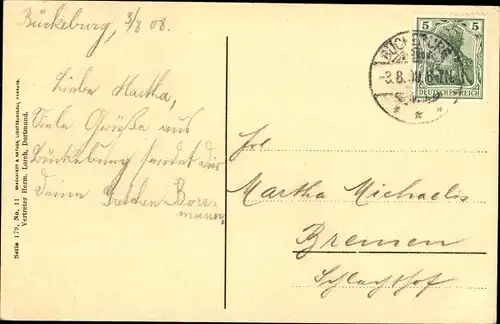 Bückeburg, 3/8 08.
Liebe Martha,
Viele Grüße aus
Bückeburg sendet dir
Deine
Frl.
Martha Michaelis
Bremen
Schlachthof
BÜCKEBURG
-3.8.08. 6-7N.
5 5
DEUTSCHES REICH
Serie 179, No. 11
Vertreter Herm. Lorch, Dortmund.